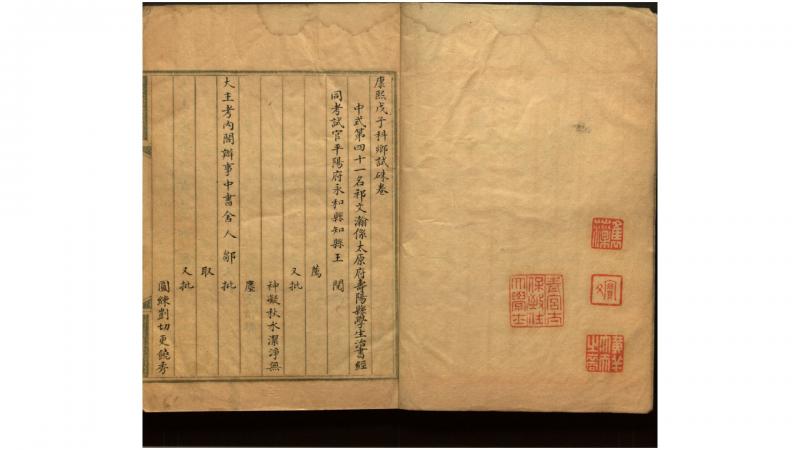 康熙戊子科鄉試硃卷
中式第四十一名祁文瀚係太原府壽陽縣學生治書經
同考試官平陽府永和縣知縣王 閱
薦
又批
神凝秋水潔淨無
塵
大主考內閣辦事中書舍人鄒 批
取
又批
圓練剴切更饒秀
青宮太
保敬
大學士